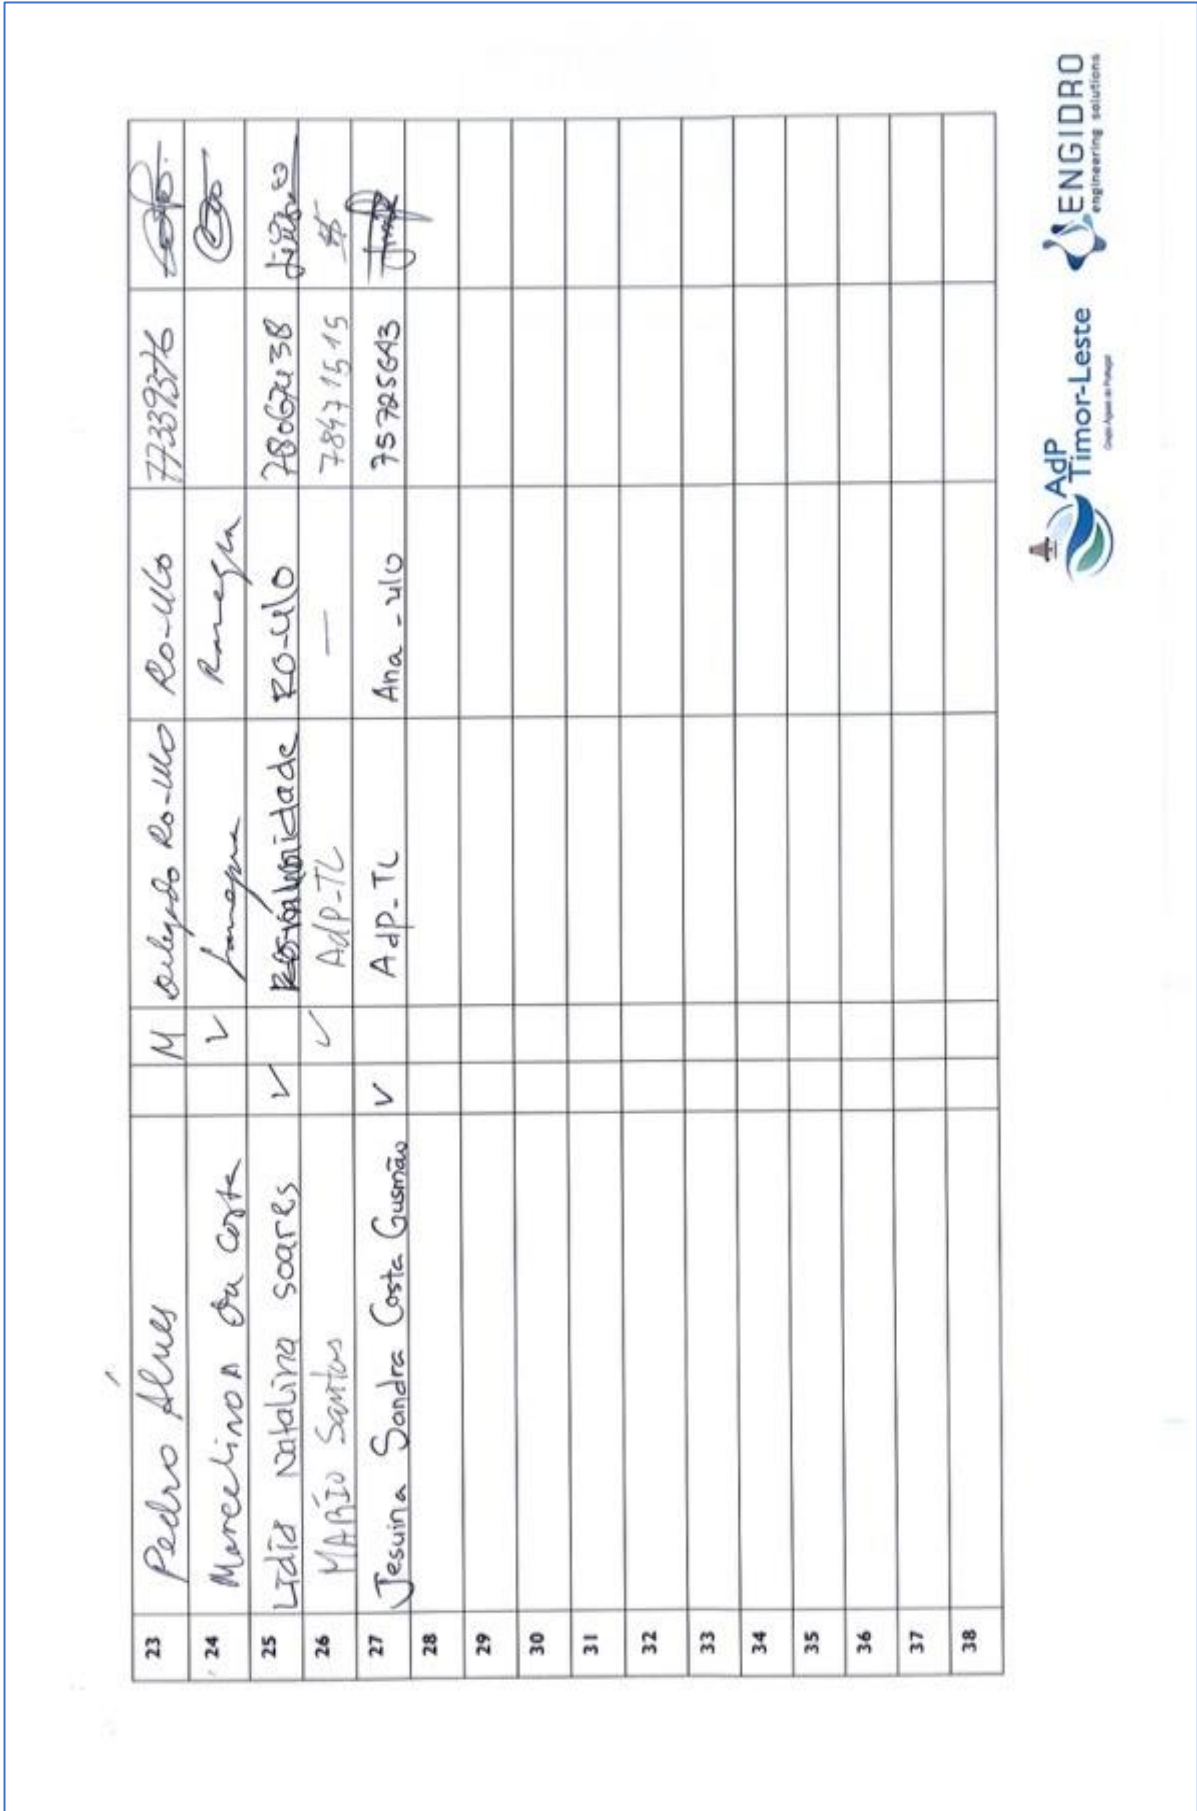 23 Pedro Alves M Delegado Ro-ulo Ro-ulo 77339376
24 Marcelino A Da Costa ✓
25 Lidia Natalina Soares ✓ RO-ulo
26 MARIO Santos ✓ AdP-TL — 78471515
27 Jesuina Sandra Costa Gusmão ✓ AdP-TL Ana-ulo 75725643
28
29
30
31
32
33
34
35
36
37
38
AdP
Timor-Leste
Grupo Águas de Portugal
ENGIDRO
engineering solutions